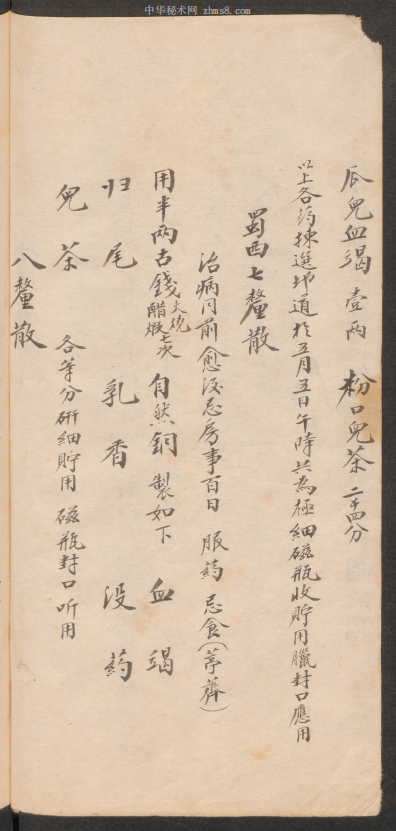 中华秘术网 zhms8.com
瓜兒血竭 壹两 粉口兒茶 二千四分
以上各药揀選地道於五月五日午時共為極細磁瓶收貯用臘封口應用
蜀西七釐散
治病同前愈後忌房事百日 服药忌食(荸薺)
用半两古錢 火燒醋煅七次 自然銅 製如下 血竭
归尾 乳香 没药
兒茶 各等分研細貯用 磁瓶封口听用
八釐散